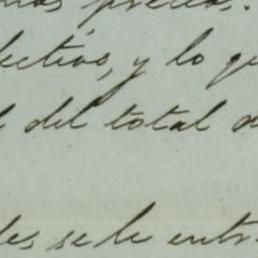 precios.
lectivo, y lo
del total
se le entr